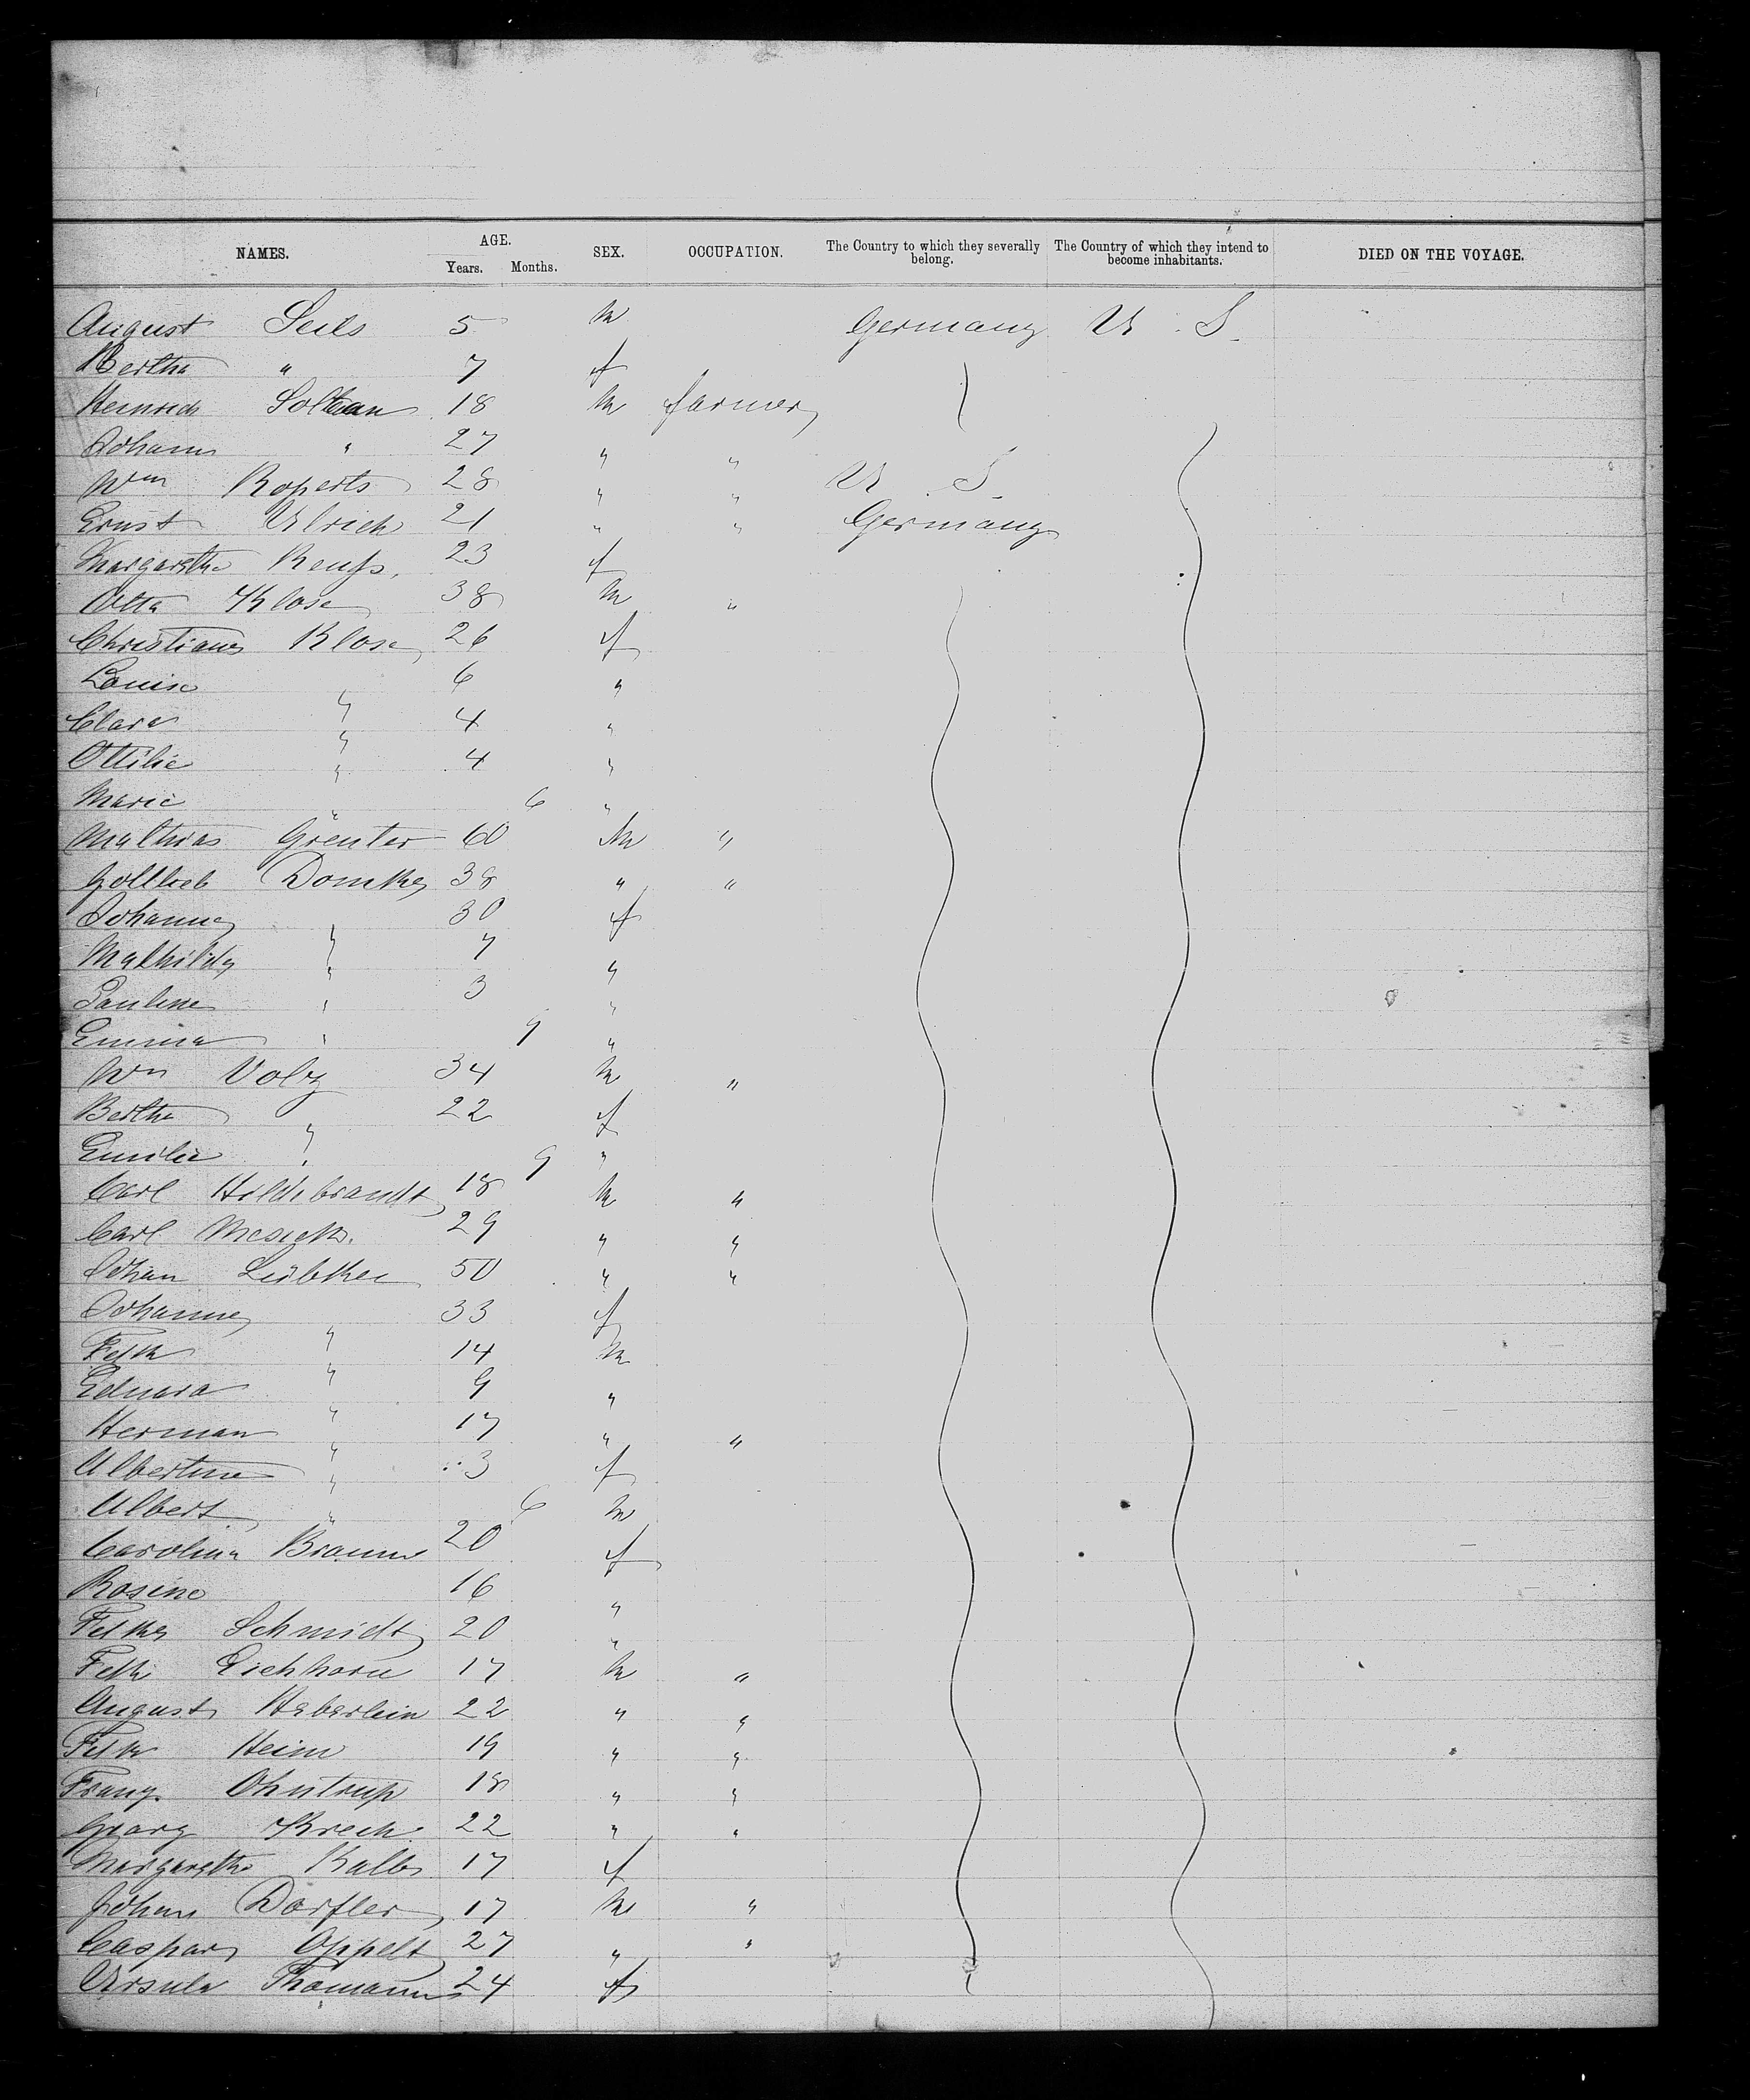 NAMES. AGE. SEX. OCCUPATION. The Country to which they severally belong. The Country of which they intend to become inhabitants. DIED ON THE VOYAGE.
Years. Months.
August Seils 5 m Germany U. S.
Bertha " 7 f
Heinrich Soltean 18 m farmer
Johann " 27 " "
Wm Roperts 28 " " U. S.
Ernst Ulrich 21 " " Germany
Margarethe Reuss. 23 f
Otto Klose 38 m "
Christiane Klose 26 f
Louise " 6 "
Clara " 4 "
Ottilie " 4 "
Marie " 6 "
Mathias Greuter 60 m "
Gottlieb Domke 38 " "
Johanne " 30 f
Mathilde " 7 "
Pauline " 3 "
Emma " 9 "
Wm Volz 34 m "
Bertha " 22 f
Emilie " 9 "
Carl Hildebrandt 18 m "
Carl 29 " "
Johan Lübkee 50 " "
Johanne " 33 f
" 14 m
Eduard " 9 "
Herman " 17 " "
Albertine " 3 f
Albert " 6 m
Carolina Braune 20 f
Rosine 16 "
Schmidt 20 "
Eichhorn 17 m "
August Heberlein 22 " "
Heim 19 " "
Franz Ohntrup 18 " "
Georg Krech 22 " "
Margarethe Kalb 17 f
Johan Dorfler 17 m "
Caspar Oppelt 27 " "
Ursula Thomann 24 f